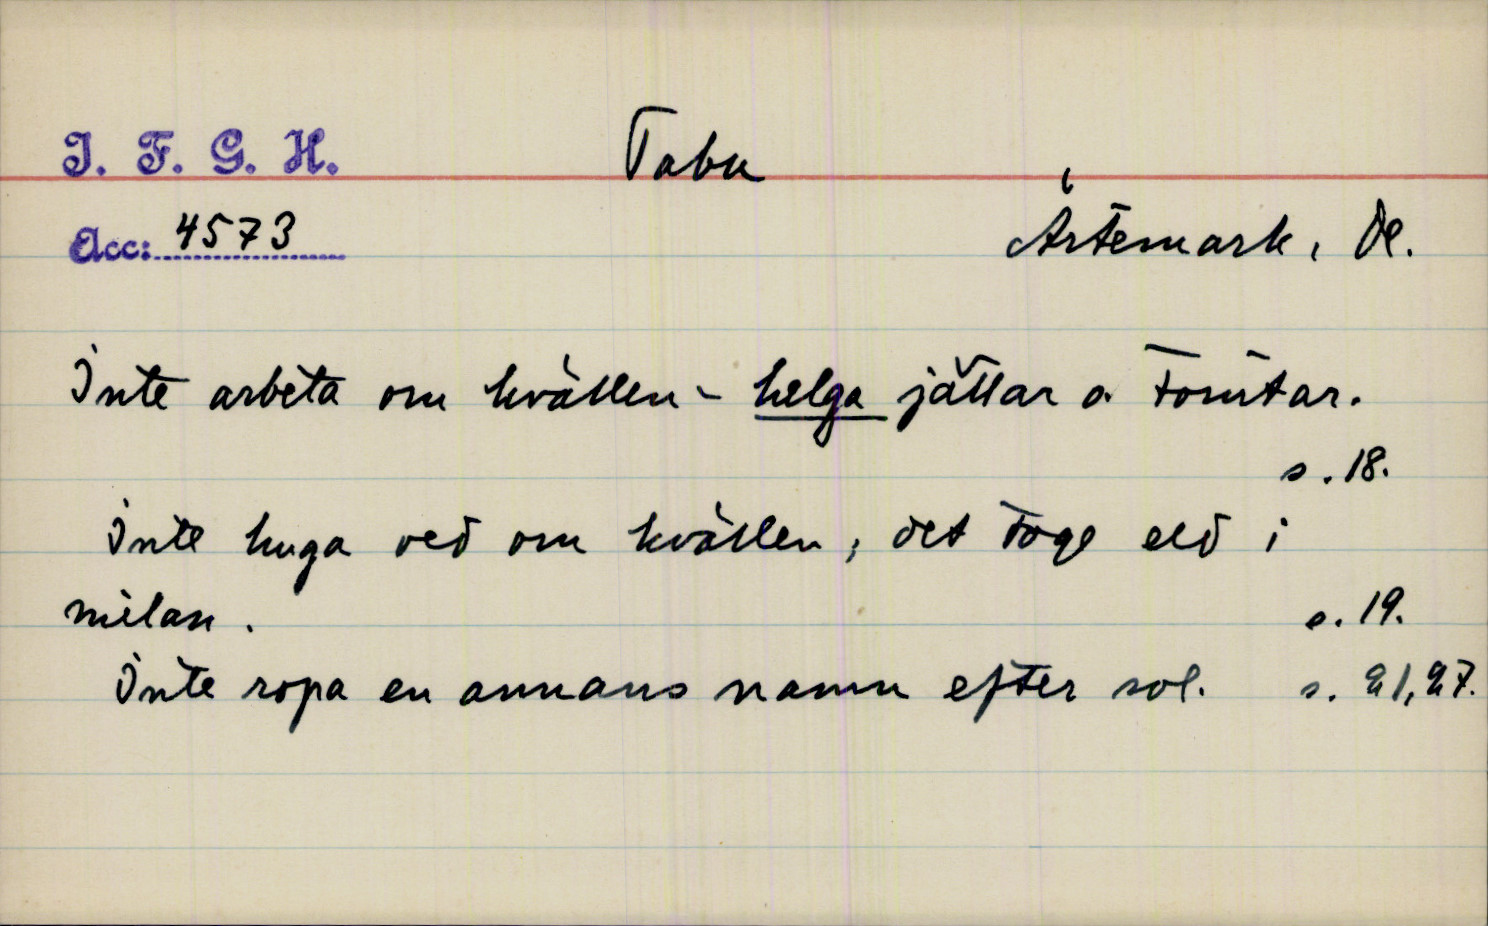 I. F. G. H.
Tabu
Acc: 4573
Ärtemark, Dl.
Inte arbeta om kvällen - helga jättar o. tomtar.
s. 18.
Inte hugga ved om kvällen, det toge eld i
milan.
s. 19.
Inte ropa en annans namn efter sol. s. 21, 27.